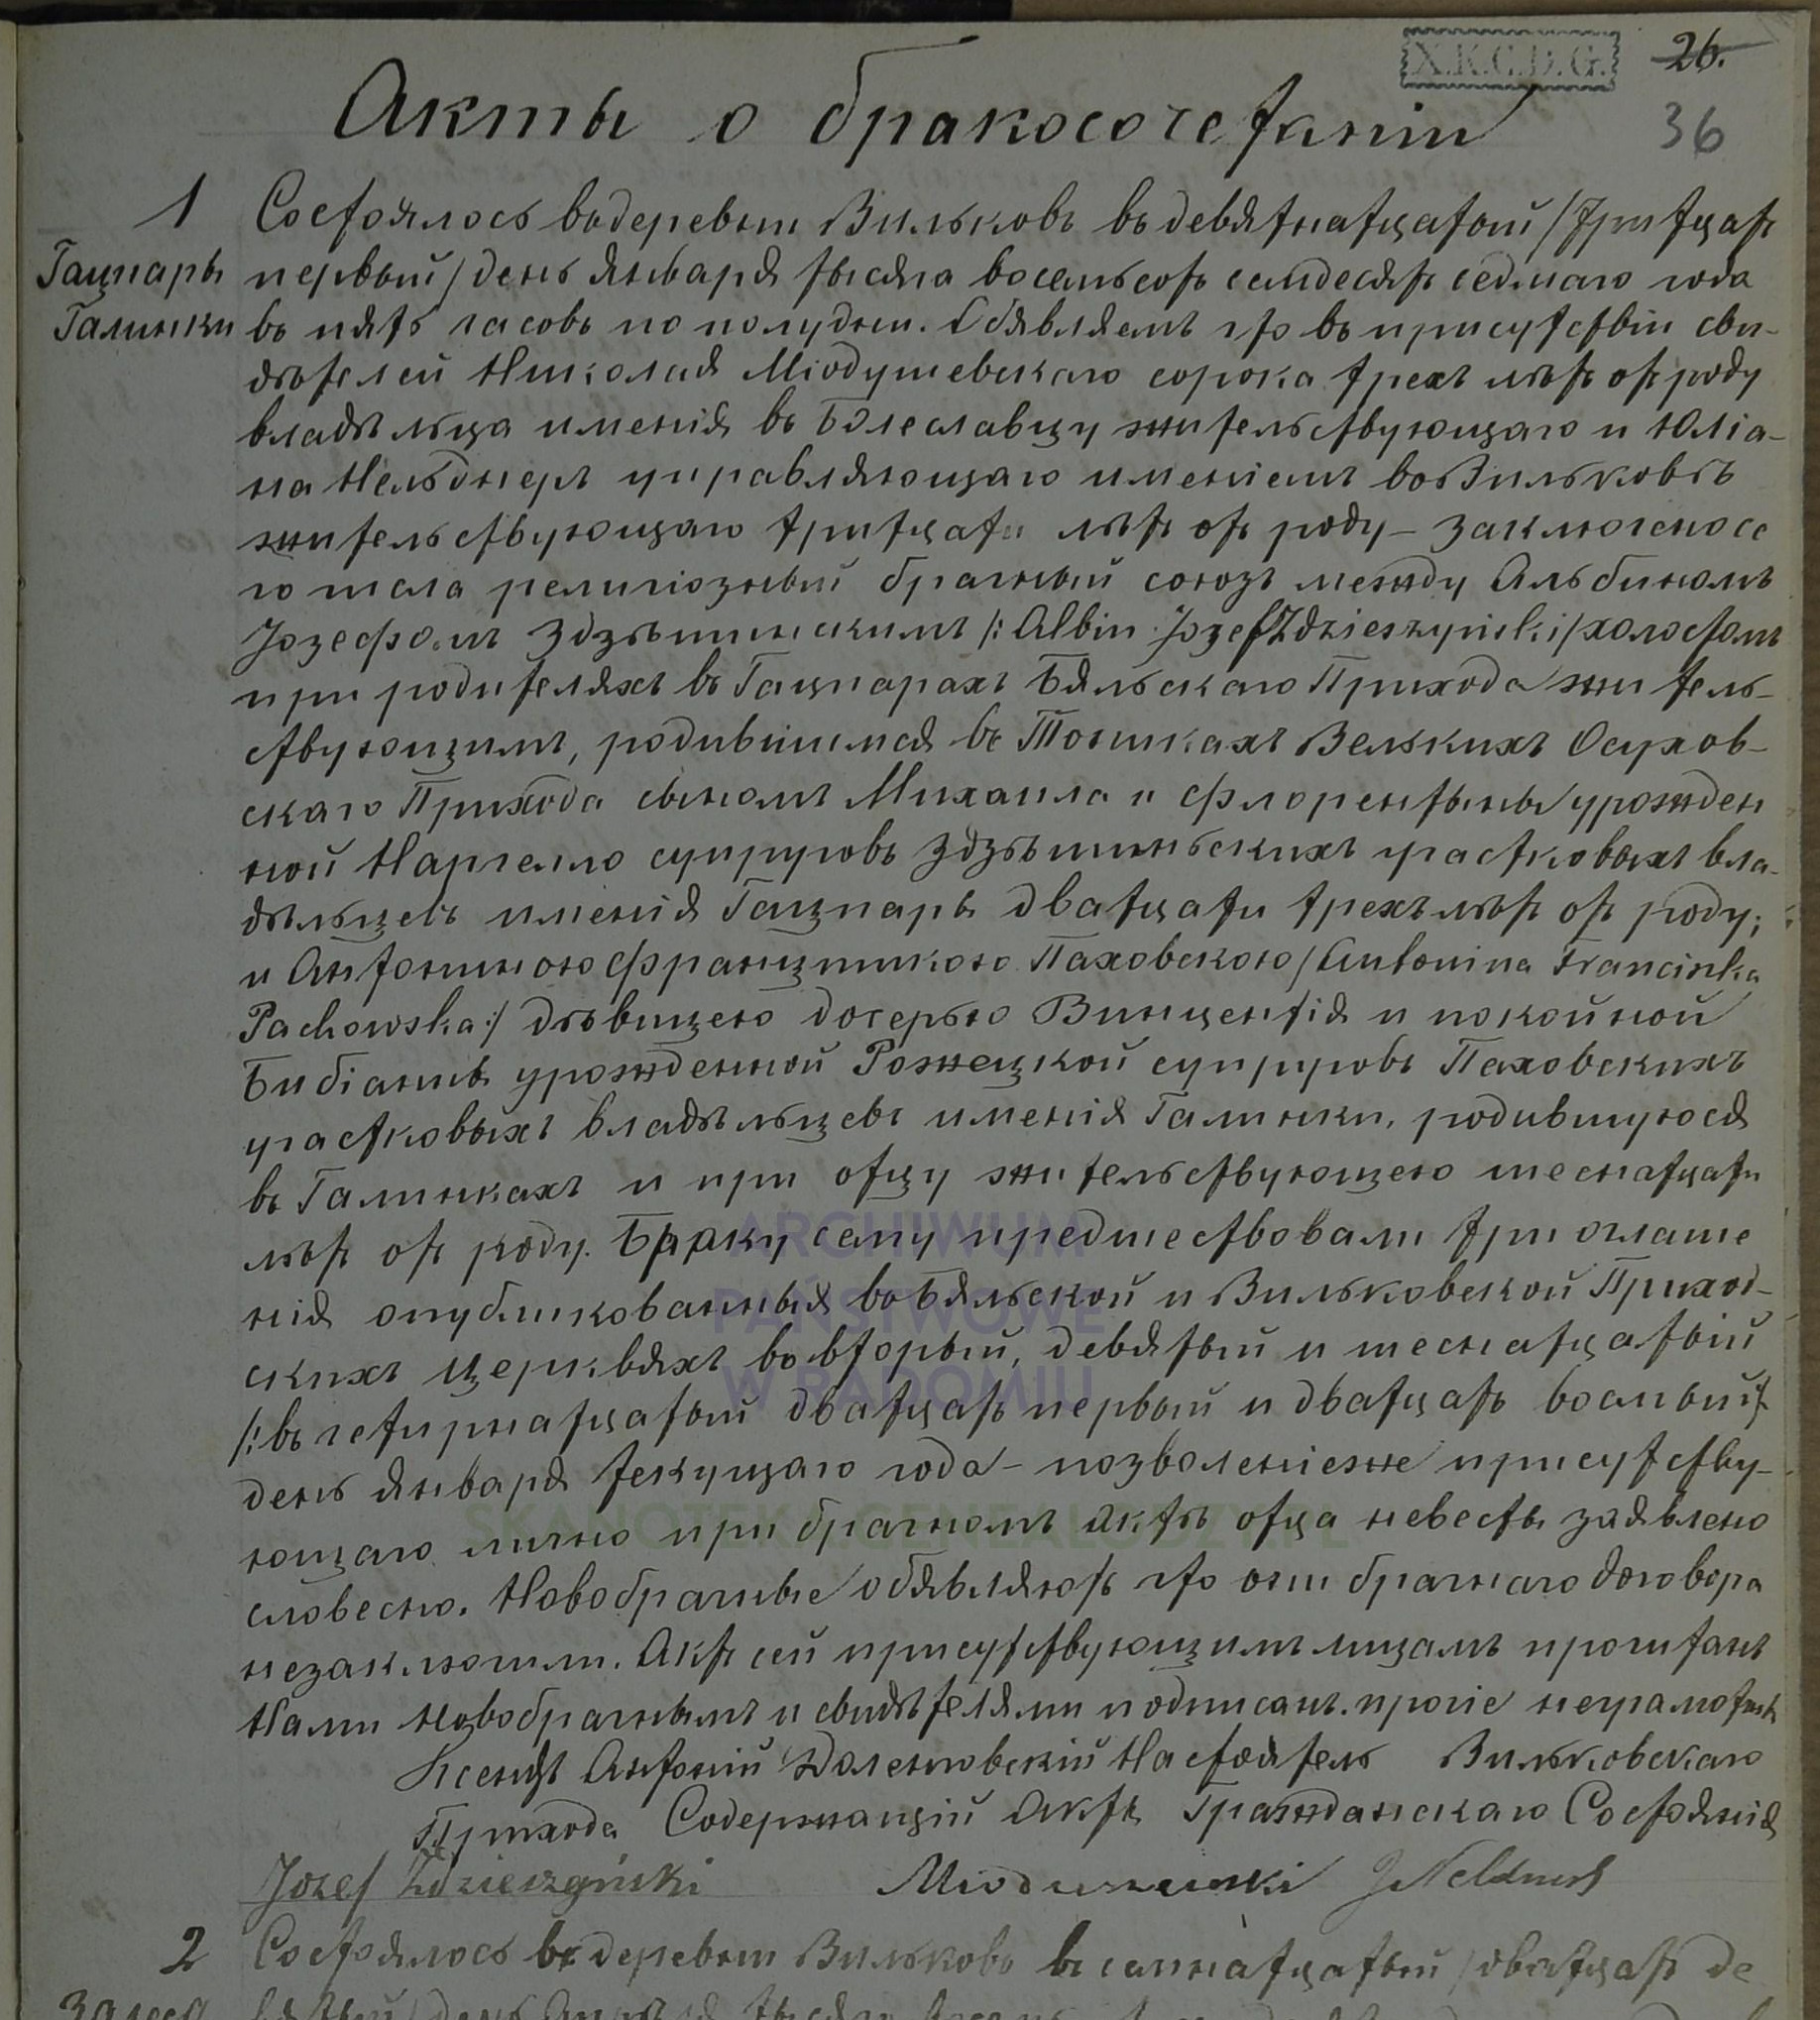 X.K.G.D.G.
26.
36
Акты о бракосочетаніи
1
Гацпары
Галинки
Состоялось въ деревни Вильковъ въ девятнатцатый /тритцать
первый/ день Января тысяча восемьсотъ семдесятъ седмаго года
въ пять часовъ по полудни. Обявляемъ что въ присутствіи сви-
дѣтелей Николая Міодушевскаго сорока трехъ лѣтъ отъ роду
владѣльца именія въ Болеславцу жительствующаго и Юліа-
на Нельднеръ управляющаго именіемъ во Вильковѣ
жительствующаго тритцати лѣтъ отъ роду – заключеносе
го числа религіозный брачный союзъ между Альбиномъ
Јозефомъ Здзѣшинскимъ /: Albin Józef Zdzieszyński / холостомъ
при родителяхъ въ Гацпарахъ Бяльскаго Прихода житель-
ствующимъ, родившимся въ Точикахъ Велькихъ Осухов-
скаго Прихода сыномъ Михаила и Флорентыны урожден
ной Наргелло супруговъ Здзѣшиньскихъ участковыхъ вла-
дѣльцевъ именія Гацпары дватцати трехъ лѣтъ отъ роду;
и Антониною Францишкою Паховскою / Antonina Franciszka
Pachowska :/ дѣвицею дочерью Винцентія и покойной
Бибіанны урожденной Рожецкой супруговъ Паховскихъ
участковыхъ владѣльцевъ именія Галинки, родившуюся
въ Галинкахъ и при отцу жительствующею шеснатцати
лѣтъ отъ роду. Браку сему предшествовали три оглаше
нія опубликованныя во Бяльской и Вильковской Приход-
скихъ церквяхъ во вторый, девятый и шеснатцатый
/: въ четирнатцатый дватцать первый и дватцать восьмый /
день Января текущаго года – позволеніеже присутству-
ющаго лично при брачномъ актѣ отца невесты заявлено
словесно. Новобрачные обявляютъ что они брачнаго договора
незаключили. Актъ сей присутствующимъ лицамъ прочитанъ
Нами Новобрачнымъ и свидѣтелями подписанъ. прочіе неграмотны
Ксендзъ Антоній Доленговскій Настоятель Вильковскаго
Прихода Содержащій Акты Гражданскаго Состоянія
Józef Zdzieszyński Mioduszewski J Neldner
2
Состоялось въ деревни Вильковъ въ семнатцатый /дватцать де
Залеса
вятый/ день Января тысяча